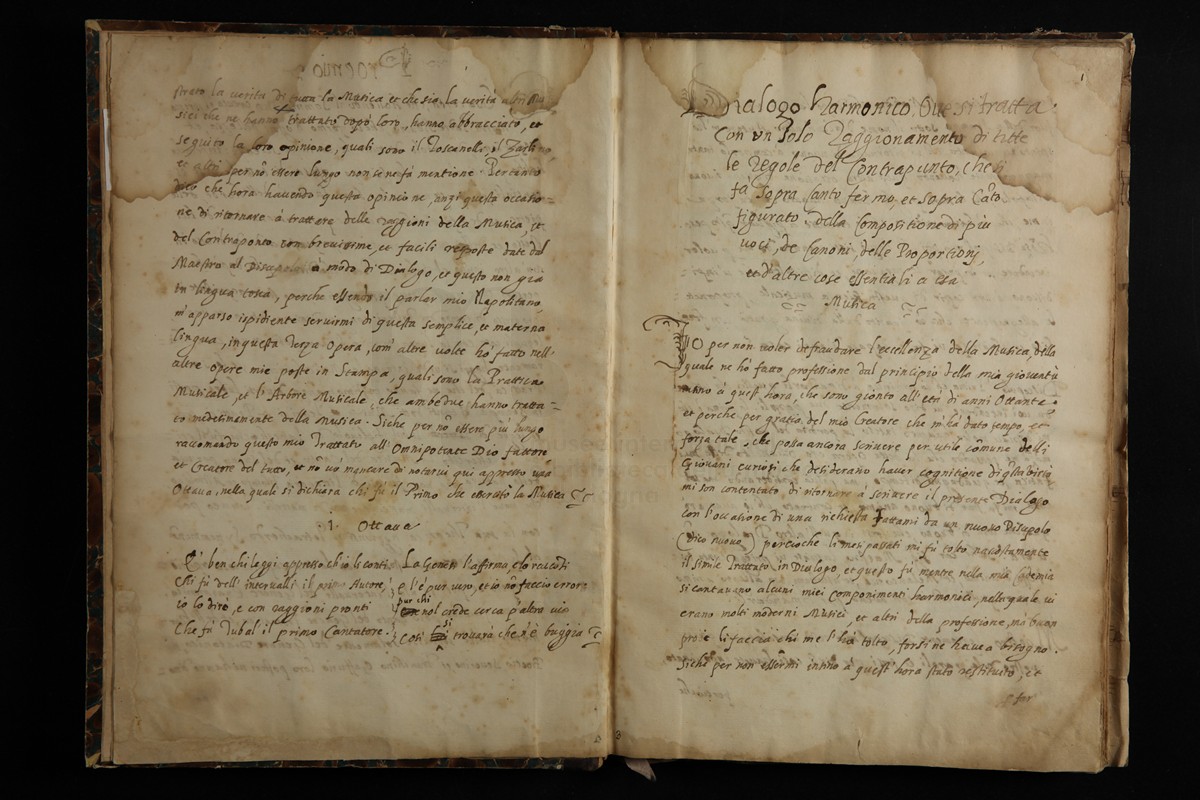 Proemio
strato la verità di tutta la Musica, et che sia la verità altri Mu
sici che ne hanno trattato dopò loro, hanno abbracciato, et
seguito la loro opinione, quali sono il Toscanelli, il Zarlino
et altri per nõ essere lungo non se ne fà mentione. Per tanto
dico che hora havendo questa opinione, anzi questa occatio=
ne di ritornare à trattare delle raggioni della Musica, et
del Contraponto con brevissime, et facili resposte date dal
Maestro al Discepolo à modo di Dialogo, et questo non già
in lingua tosca, perche essendo il parlar mio Napolitano,
m'apparso ispidiente servirmi di questa semplice, et materna
lingua, in questa terza opera, com'altre volte hò fatto nell'
altre opere mie poste in Stampa, quali sono la Prattica
Musicale, et l'Arbore Musicale, che ambedue hanno tratta=
to medesimamente della Musica. Siche per nõ essere più lungo
raccomando questo mio Trattato all'Omnipotente Dio fattore
et Creatore del tutto, et nõ vo mancare di notarvi qui appresso una
Ottava, nella quale si dichiara chi fù il Primo che esercitò la Musica
1. Ottava
E' ben ch'i leggi appresso ch'io le conti
Chi fù dell'intervalli il primo Autore,
io lo dirò, e con raggioni pronti
Che fù Iubal il primo Cantatore.
La Genesi l'affirma, e lo racconti
e l'è pur vero, et io nõ faccio errore
pur chi
nol crede cerca p altra via
si
Così trovarà che n'è buggia
1
Dialogo Harmonico, Ove si tratta
Con un Solo Raggionamento di tutte
le regole del Contrapunto, che si
fà Sopra Canto fermo, et Sopra Cãto
figurato. della Compositione di più
voci, de Canoni, delle Proportioni,
et d'altre cose essentiali a essa
Musica
IO per non voler defraudare l'eccellenza della Musica, della
quale ne hò fatto professione dal principio della mia gioventù
insino à quest'hora, che sono gionto all'età di anni Ottanta
et perche per gratia del mio Creatore che m'hà dato tempo, et
forza tale, che possa ancora scrivere per utile cõmune delli
Giovani curiosi che desiderano haver cognitione di q̃sta virtù
mi son contentato di ritornare à scrivere il presente Dialogo
con l'occasione di una richiesta fattami da un nuovo Discipolo
(dico nuovo) percioche li mesi passati mi fù tolto nascostamente
il simile Trattato in Dialogo, et questo fù mentre nella mia Academia
si cantavano alcuni miei componimenti harmonici, nella quale vi
erano molti moderni Musici, et altri della professione, ma buon
pro je li faccia chi me l'hà tolto, forsi ne haveva bisogno.
Siche per non essermi insino à quest'hora stato restituito, et
p far